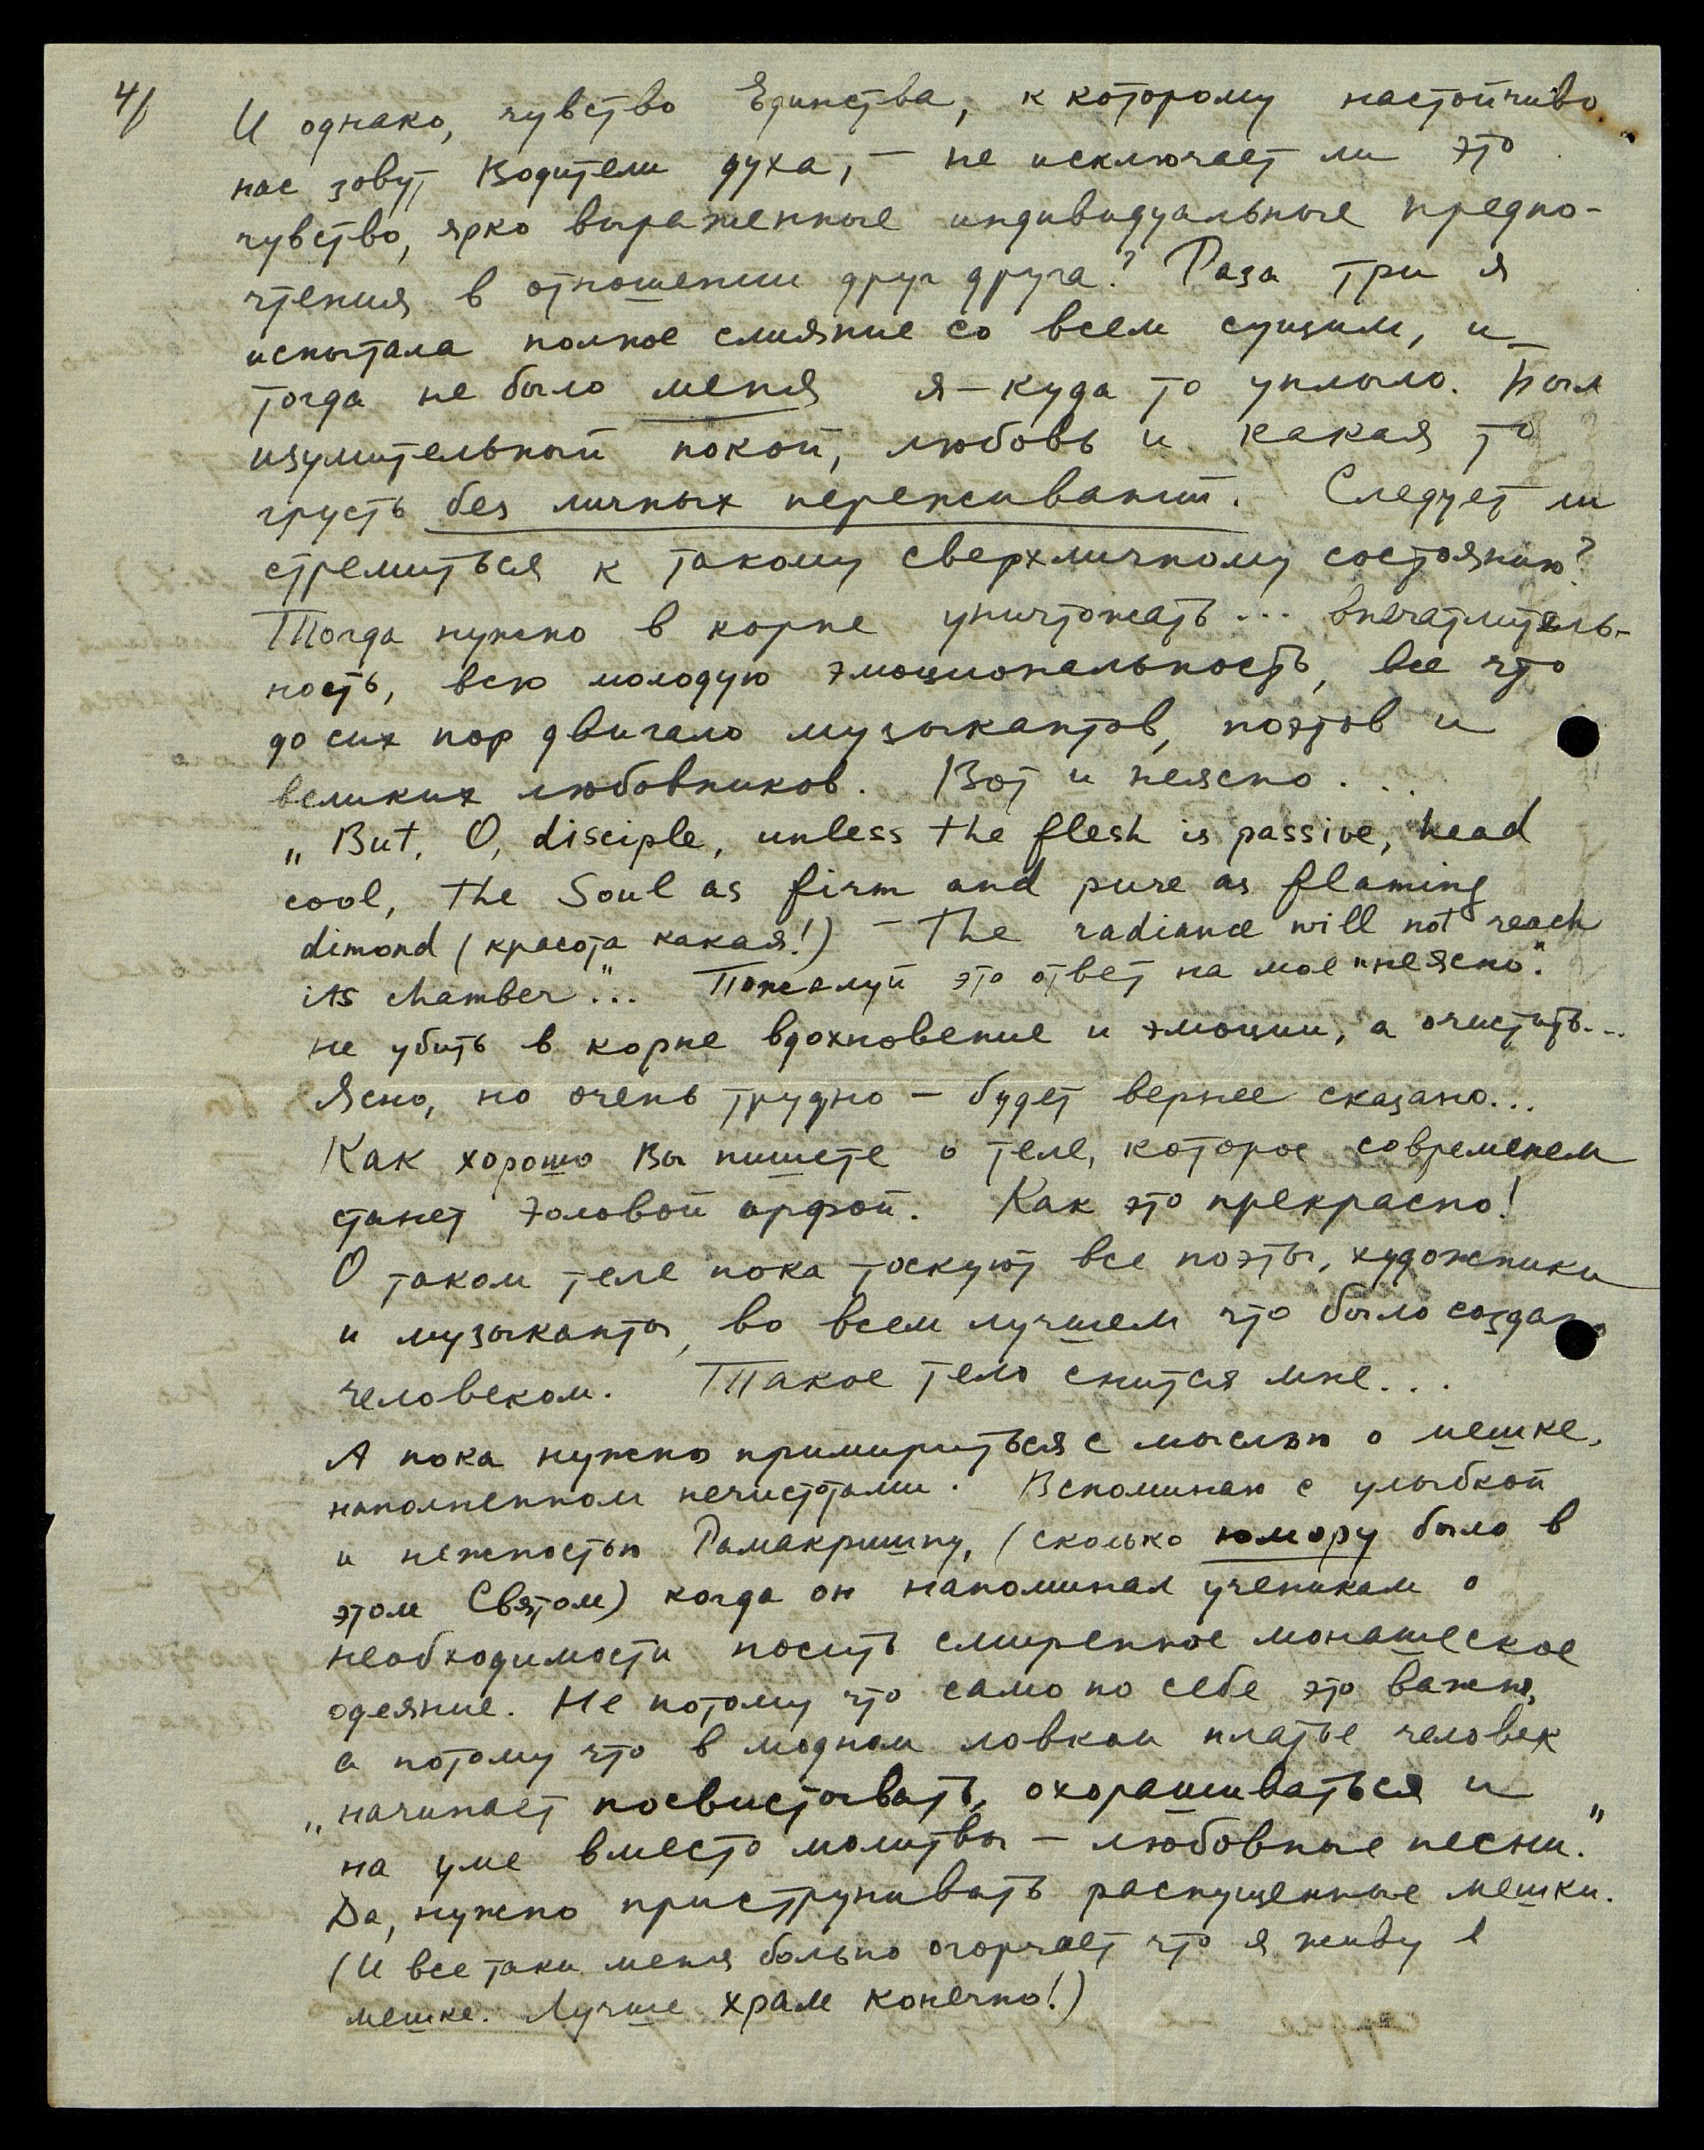 4/
И однако, чувство Единства, к которому настойчиво
нас зовут Водители духа, – не исключает ли это
чувство, ярко выраженные индивидуальные предпо-
чтения в отношении друг друга? Раза три я
испытала полное слияние со всем сущим, и
тогда не было меня я – куда то уплыло. Был
изумительный покой, любовь и какая то
грусть без личных переживаний. Следует ли
стремиться к такому сверхличному состоянию?
Тогда нужно в корне уничтожать... впечатлитель-
ность, всю молодую эмоциональность, все что
до сих пор двигало музыкантов, поэтов и
великих любовников. Вот и неясно...
„But, O, disciple, unless the flesh is passive, head
cool, the Soul as firm and pure as flaming
dimond (красота какая!) – The radiance will not reach
its chamber"... Пожалуй это ответ на мое "неясно".
не убить в корне вдохновение и эмоции, а очистить...
Ясно, но очень трудно – будет вернее сказано...
Как хорошо Вы пишете о теле, которое современем
станет эоловой арфой. Как это прекрасно!
О таком теле пока тоскуют все поэты, художники
и музыканты, во всем лучшем что было создано
человеком. Такое тело снится мне...
А пока нужно примириться с мыслью о мешке,
наполненном нечистотами. Вспоминаю с улыбкой
и нежностью Рамакришну, (сколько юмору было в
этом Святом) когда он напоминал ученикам о
необходимости носить смиренное монашеское
одеяние. Не потому что само по себе это важно,
а потому что в модном ловком платье человек
„начинает посвистывать, охорашиваться и
на уме вместо молитвы – любовные песни."
Да, нужно приструнивать распущенные мешки.
(И все таки меня больно огорчает что я живу в
мешке. Лучше храм конечно!)